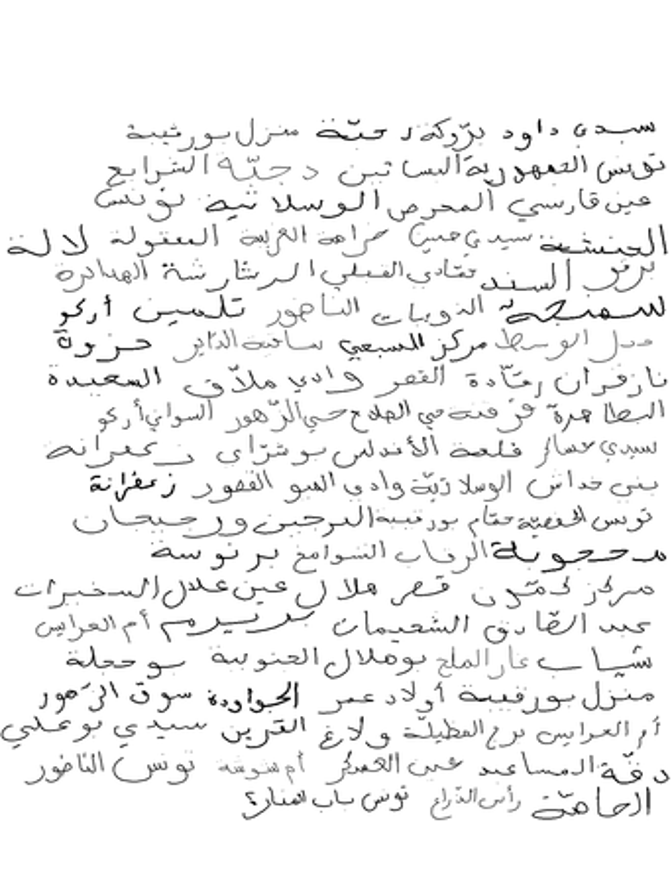 سيدي داود برّوكة رحبّة منزل بورقيبة
تونس الجمهورية البساتين دجبّة الشرايع
عين فارسي المحرص الوسلاتية تونس
الحنشة سيدي حبيب حزامة الغربية البقولة لالة
برقو السند تفادي القبلي الرشارشة الهبادرة
سمنجة الذويبات الناظور تلمين أركو
الوسط مركز السبعي ساقية الداير حزوة
تازغران رقّادة القصر وادي ملاّق السعيدة
البطاح قرقنة حي الفلاح حي الزهور السواني أركو
سيدي عساكر قلعة الأندلس بوشرّاي زعفرانة
بني خداش الوسلاتيّة وادي القصور زعفرانة
تونس الحفصيّة مقام بورقيبة البرجين ورجيجان
محجوبة الرقاب الشوامخ برنوسة
مركز كمّون قصر هلال عين علال السخيرات
عبد الصّادق الشعيمات أم العرايس
شباب غار الملح بوهلال الجنوبية بوحجلة
منزل بورقيبة أولاد عمر الجواودة سوق الزهور
أم العرايس برج الفطيلة ولاغ القرين سيدي بوعلي
دقّة المساعيد عين العسكر أم شوشة تونس الناظور
الحامّة رأس الذراع تونس باب المنارة